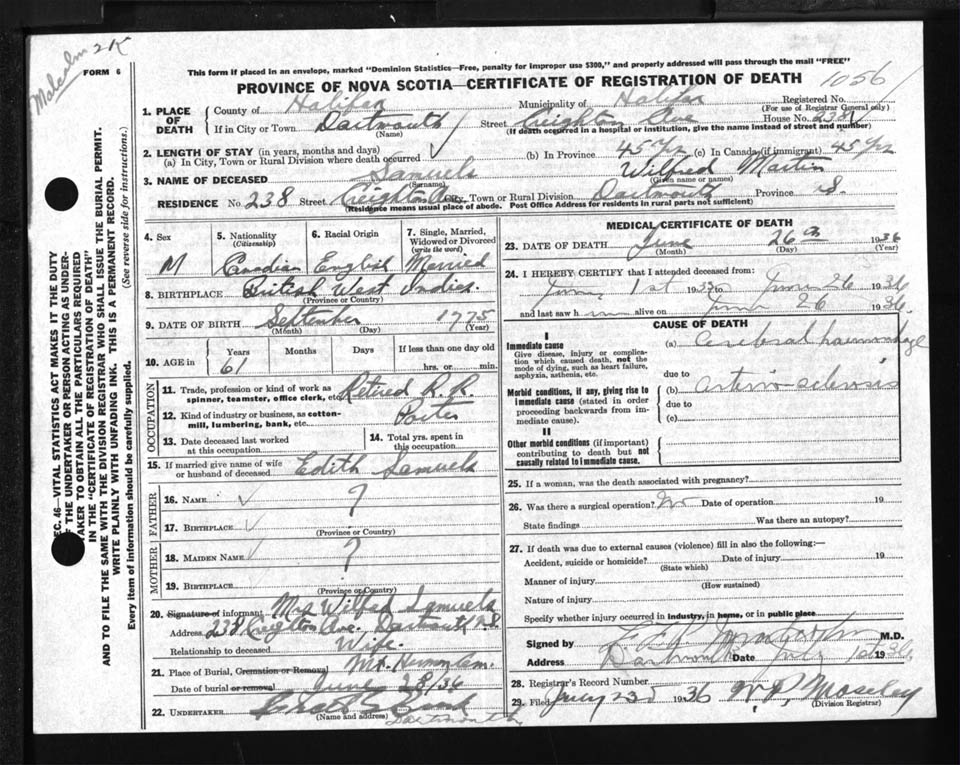 Malcolm 2K
FORM 6
This form if placed in an envelope, marked "Dominion Statistics—Free, penalty for improper use $300," and properly addressed will pass through the mail "FREE"
PROVINCE OF NOVA SCOTIA—CERTIFICATE OF REGISTRATION OF DEATH
1056
1. PLACE OF DEATH County of Halifax Municipality of Halifax Registered No. (For use of Registrar General only)
If in City or Town Dartmouth (Name) Street Creighton Ave House No. 238
(If death occurred in a hospital or institution, give the name instead of street and number)
2. LENGTH OF STAY (in years, months and days)
(a) In City, Town or Rural Division where death occurred (b) In Province 45 yrs (c) In Canada (if immigrant) 45 yrs
3. NAME OF DECEASED Samuels (Surname) Wilfred Martin (Given name or names)
RESIDENCE No. 238 Street Creighton Ave City, Town or Rural Division Dartmouth Province N.S.
(Residence means usual place of abode. Post Office Address for residents in rural parts not sufficient)
4. Sex M
5. Nationality (Citizenship) Canadian
6. Racial Origin English
7. Single, Married, Widowed or Divorced (write the word) Married
8. BIRTHPLACE British West Indies.
(Province or Country)
9. DATE OF BIRTH September 1775
(Month) (Day) (Year)
10. AGE in Years 61 Months Days If less than one day old hrs. or min.
OCCUPATION
11. Trade, profession or kind of work as spinner, teamster, office clerk, etc. Retired R.R.
12. Kind of industry or business, as cotton-mill, lumbering, bank, etc. Porter
13. Date deceased last worked at this occupation
14. Total yrs. spent in this occupation
15. If married give name of wife or husband of deceased Edith Samuels
FATHER
16. NAME ?
17. BIRTHPLACE
(Province or Country)
MOTHER
18. MAIDEN NAME ?
19. BIRTHPLACE
(Province or Country)
20. Signature of informant Mrs Wilfred Samuels
Address 238 Creighton Ave. Dartmouth N.S.
Relationship to deceased Wife
21. Place of Burial, Cremation or Removal Mt. Hermon Cem.
Date of burial or removal June 28/36
22. UNDERTAKER
(Name and address) Dartmouth
MEDICAL CERTIFICATE OF DEATH
23. DATE OF DEATH June 26th 1936
(Month) (Day) (Year)
24. I HEREBY CERTIFY that I attended deceased from:
1st 1935 to June 26 1936
and last saw him alive on June 26 1936
CAUSE OF DEATH
I
Immediate cause
Give disease, injury or complication which caused death, not the mode of dying, such as heart failure, asphyxia, asthenia, etc.
(a) Cerebral haemorrhage
due to
Morbid conditions, if any, giving rise to immediate cause (stated in order proceeding backwards from immediate cause).
(b) arterio-sclerosis
due to
(c)
II
Other morbid conditions (if important) contributing to death but not causally related to immediate cause.
25. If a woman, was the death associated with pregnancy?
26. Was there a surgical operation? No Date of operation 19
State findings Was there an autopsy?
27. If death was due to external causes (violence) fill in also the following:—
Accident, suicide or homicide? Date of injury 19
(State which)
Manner of injury
(How sustained)
Nature of injury
Specify whether injury occurred in industry, in home, or in public place
Signed by M.D.
Address Dartmouth Date July 1st 1936
28. Registrar's Record Number
29. Filed July 23d 1936 W.P. Moseley
(Division Registrar)
SEC. 46—VITAL STATISTICS ACT MAKES IT THE DUTY
OF THE UNDERTAKER OR PERSON ACTING AS UNDER-
TAKER TO OBTAIN ALL THE PARTICULARS REQUIRED
IN THE "CERTIFICATE OF REGISTRATION OF DEATH"
AND TO FILE THE SAME WITH THE DIVISION REGISTRAR WHO SHALL ISSUE THE BURIAL PERMIT.
WRITE PLAINLY WITH UNFADING INK. THIS IS A PERMANENT RECORD.
Every item of information should be carefully supplied. (See reverse side for instructions.)